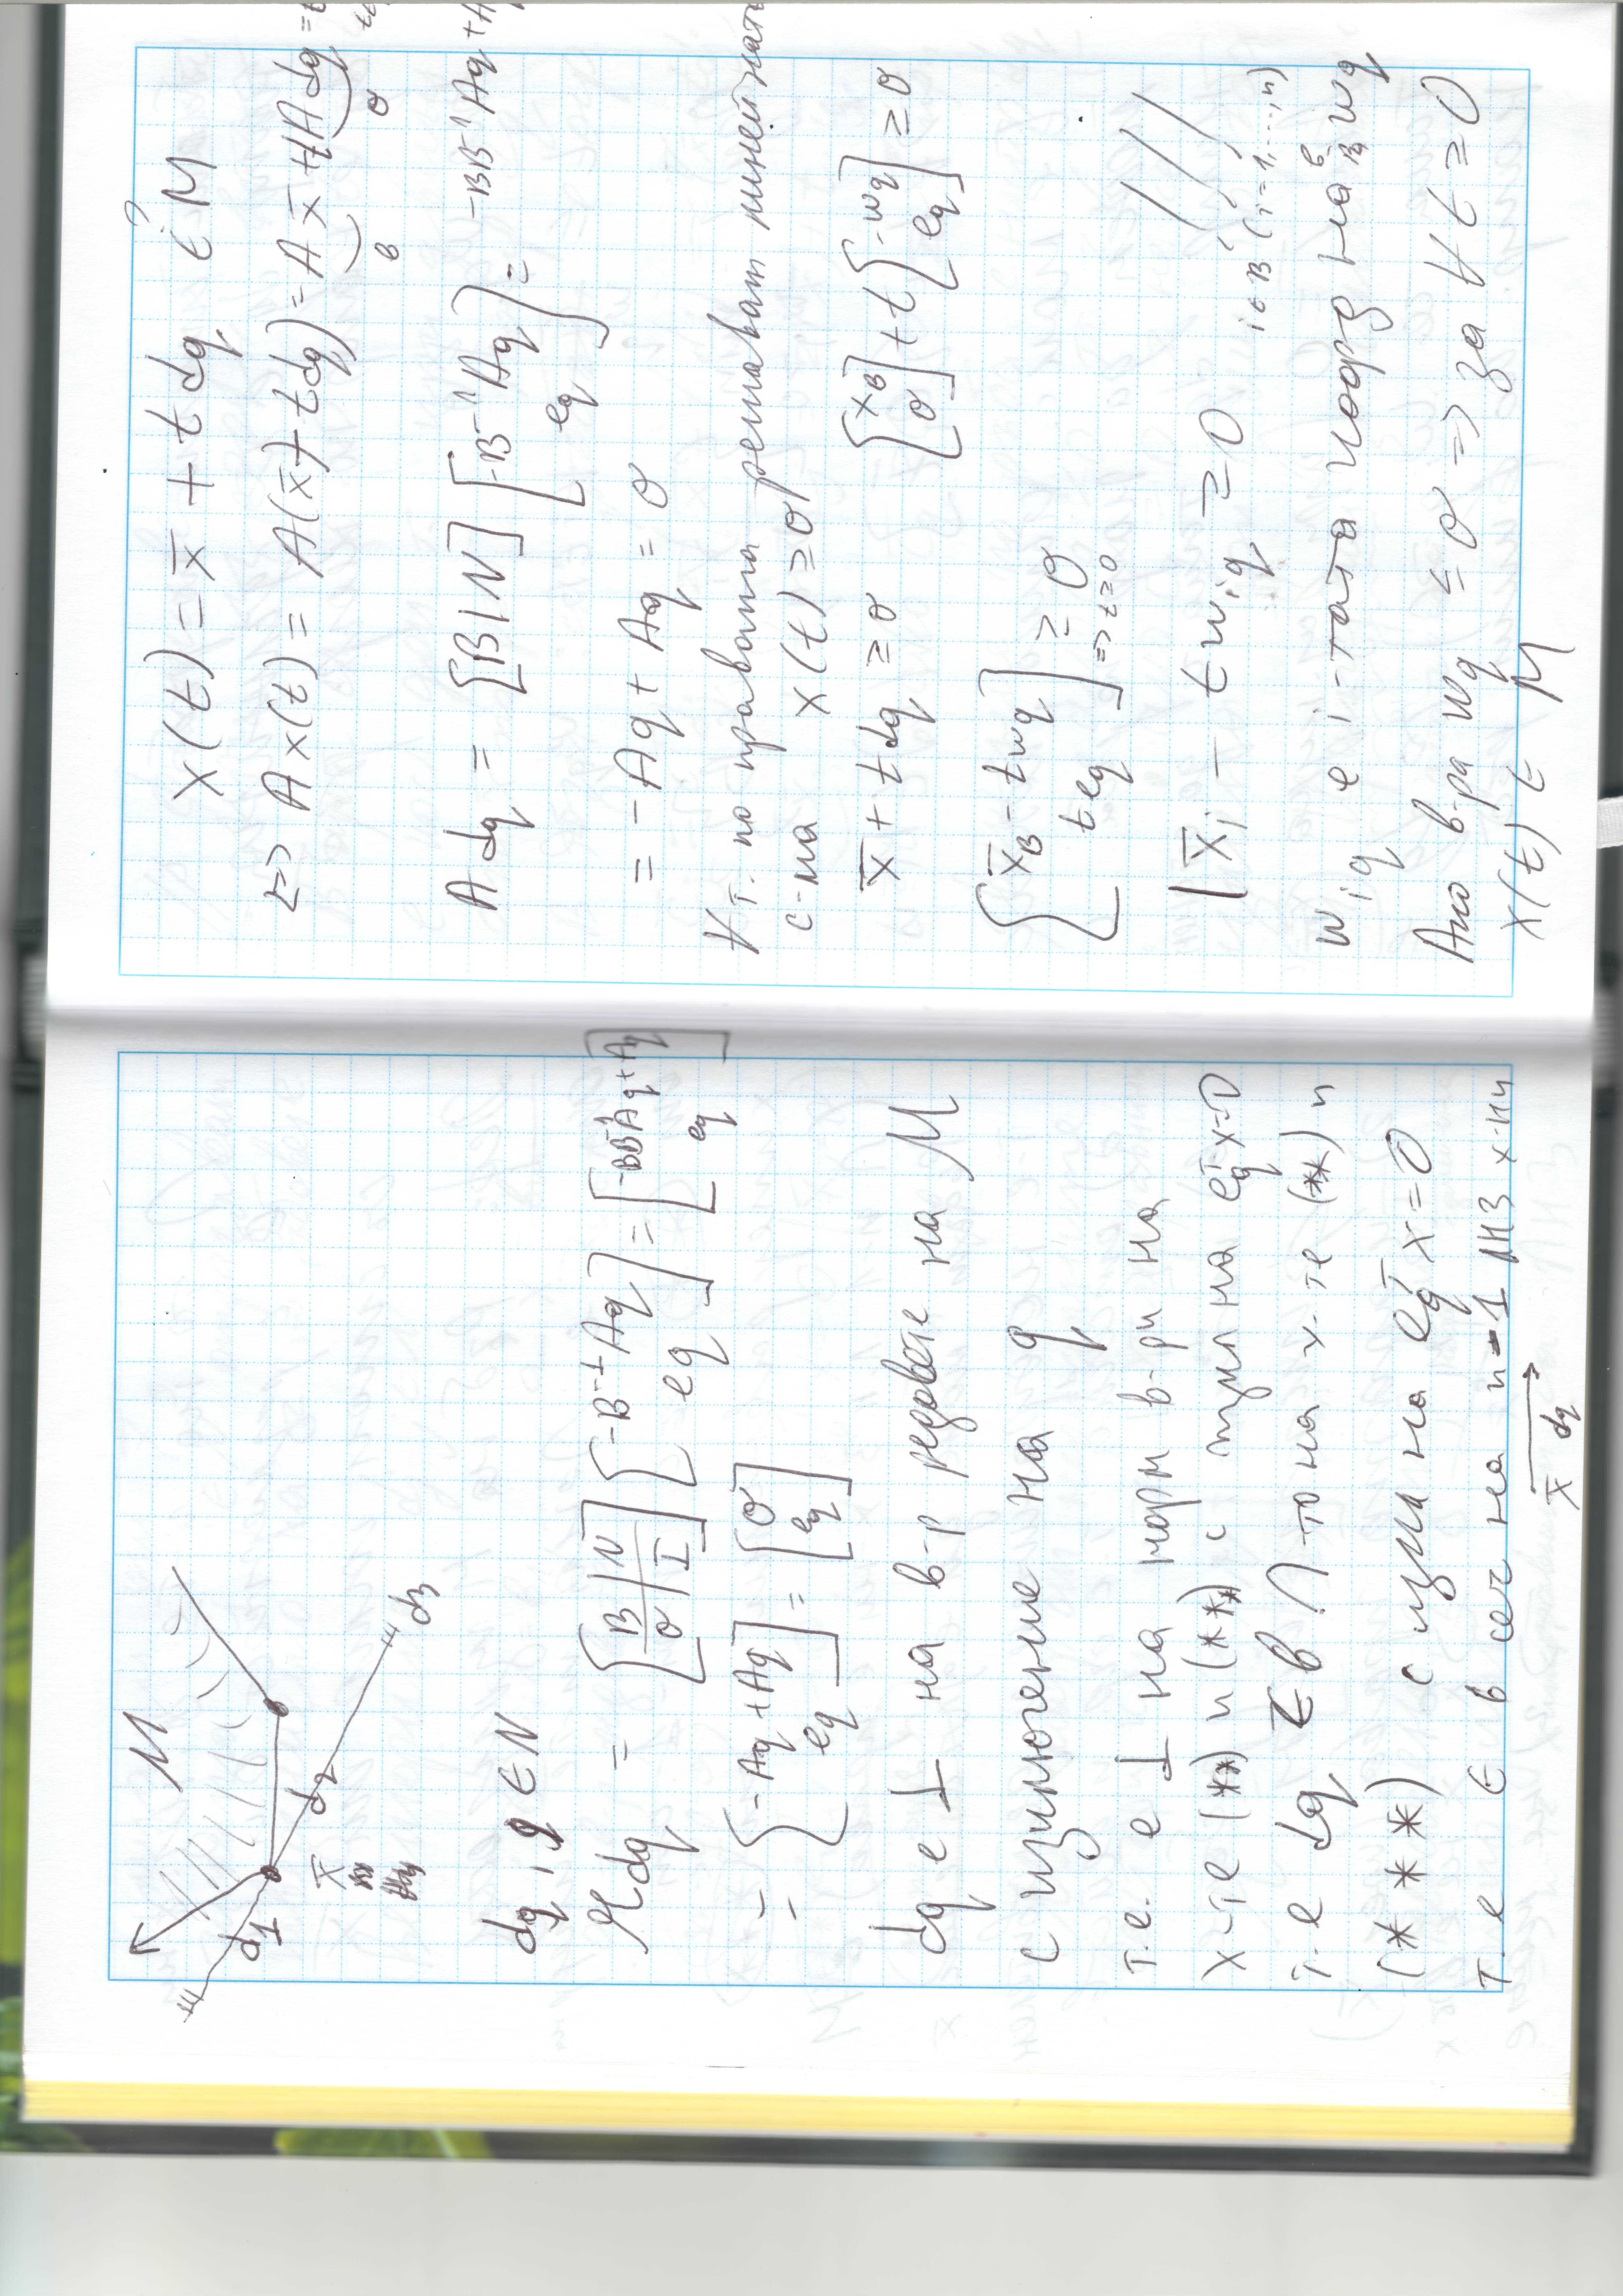 M
d1
x̄
d2
d3
dq, q ∈ N
𝓜dq = [B|N / 0|I] [-B⁻¹Aq / eq] = [-BB⁻¹Aq + Aq / eq]
= [-Aq + Aq / eq] = [0 / eq]
dq е ⊥ на в-р редовете на M
с изключение на q
т.е. е ⊥ на норм в-ри на
х-те (**) и (***) с изкл на eqᵀx=0
т.е dq ∈ в ∩-то на х-те (**) и
(***) с изкл на eqᵀx=0
т.е ∈ в сеч на n-1 ЛНЗ х-ни
x̄ dq
x(t) = x̄ + t dq ∈? M
<=> Ax(t) = A(x̄ + t dq) = Ax̄ + tA dq =
b 0
A dq = [B|N] [-B⁻¹Aq / eq] = -BB⁻¹Aq +
= -Aq + Aq = 0
∀ т. по правата решават линейната
с-ма x(t) ≥ 0
x̄ + t dq ≥ 0 [x̄B / 0] + t [-wq / eq] ≥ 0
[x̄B - t wq / t eq] ≥ 0 => t ≥ 0
| x̄i - t wiq ≥ 0 i ∈ B (i = 1, ..., n)
wiq е i-тата коорд на в-ра wq
Ако в-ра wq ≤ 0 => за ∀ t ≥ 0
x(t) ∈ M